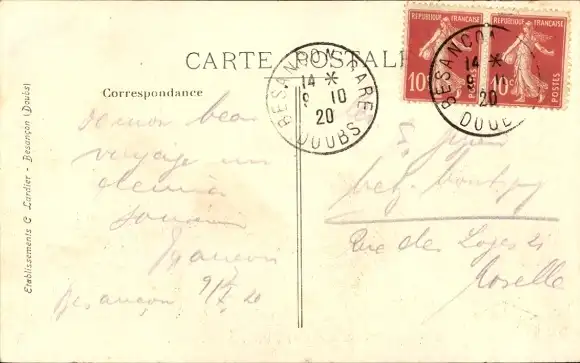 CARTE POSTALE
Correspondance
de mon beau
voyage un
dernier
souvenir
Besançon 9/X 20
Etablissements C. Lardier - Besançon (Doubs)
BESANÇON GARE
14 *
9 10
20
DOUBS
REPUBLIQUE FRANÇAISE
10c
POSTES
REPUBLIQUE FRANÇAISE
10c
POSTES
BESANÇON
14 *
9 10
20
DOUBS
Rue des Loges 21
Moselle